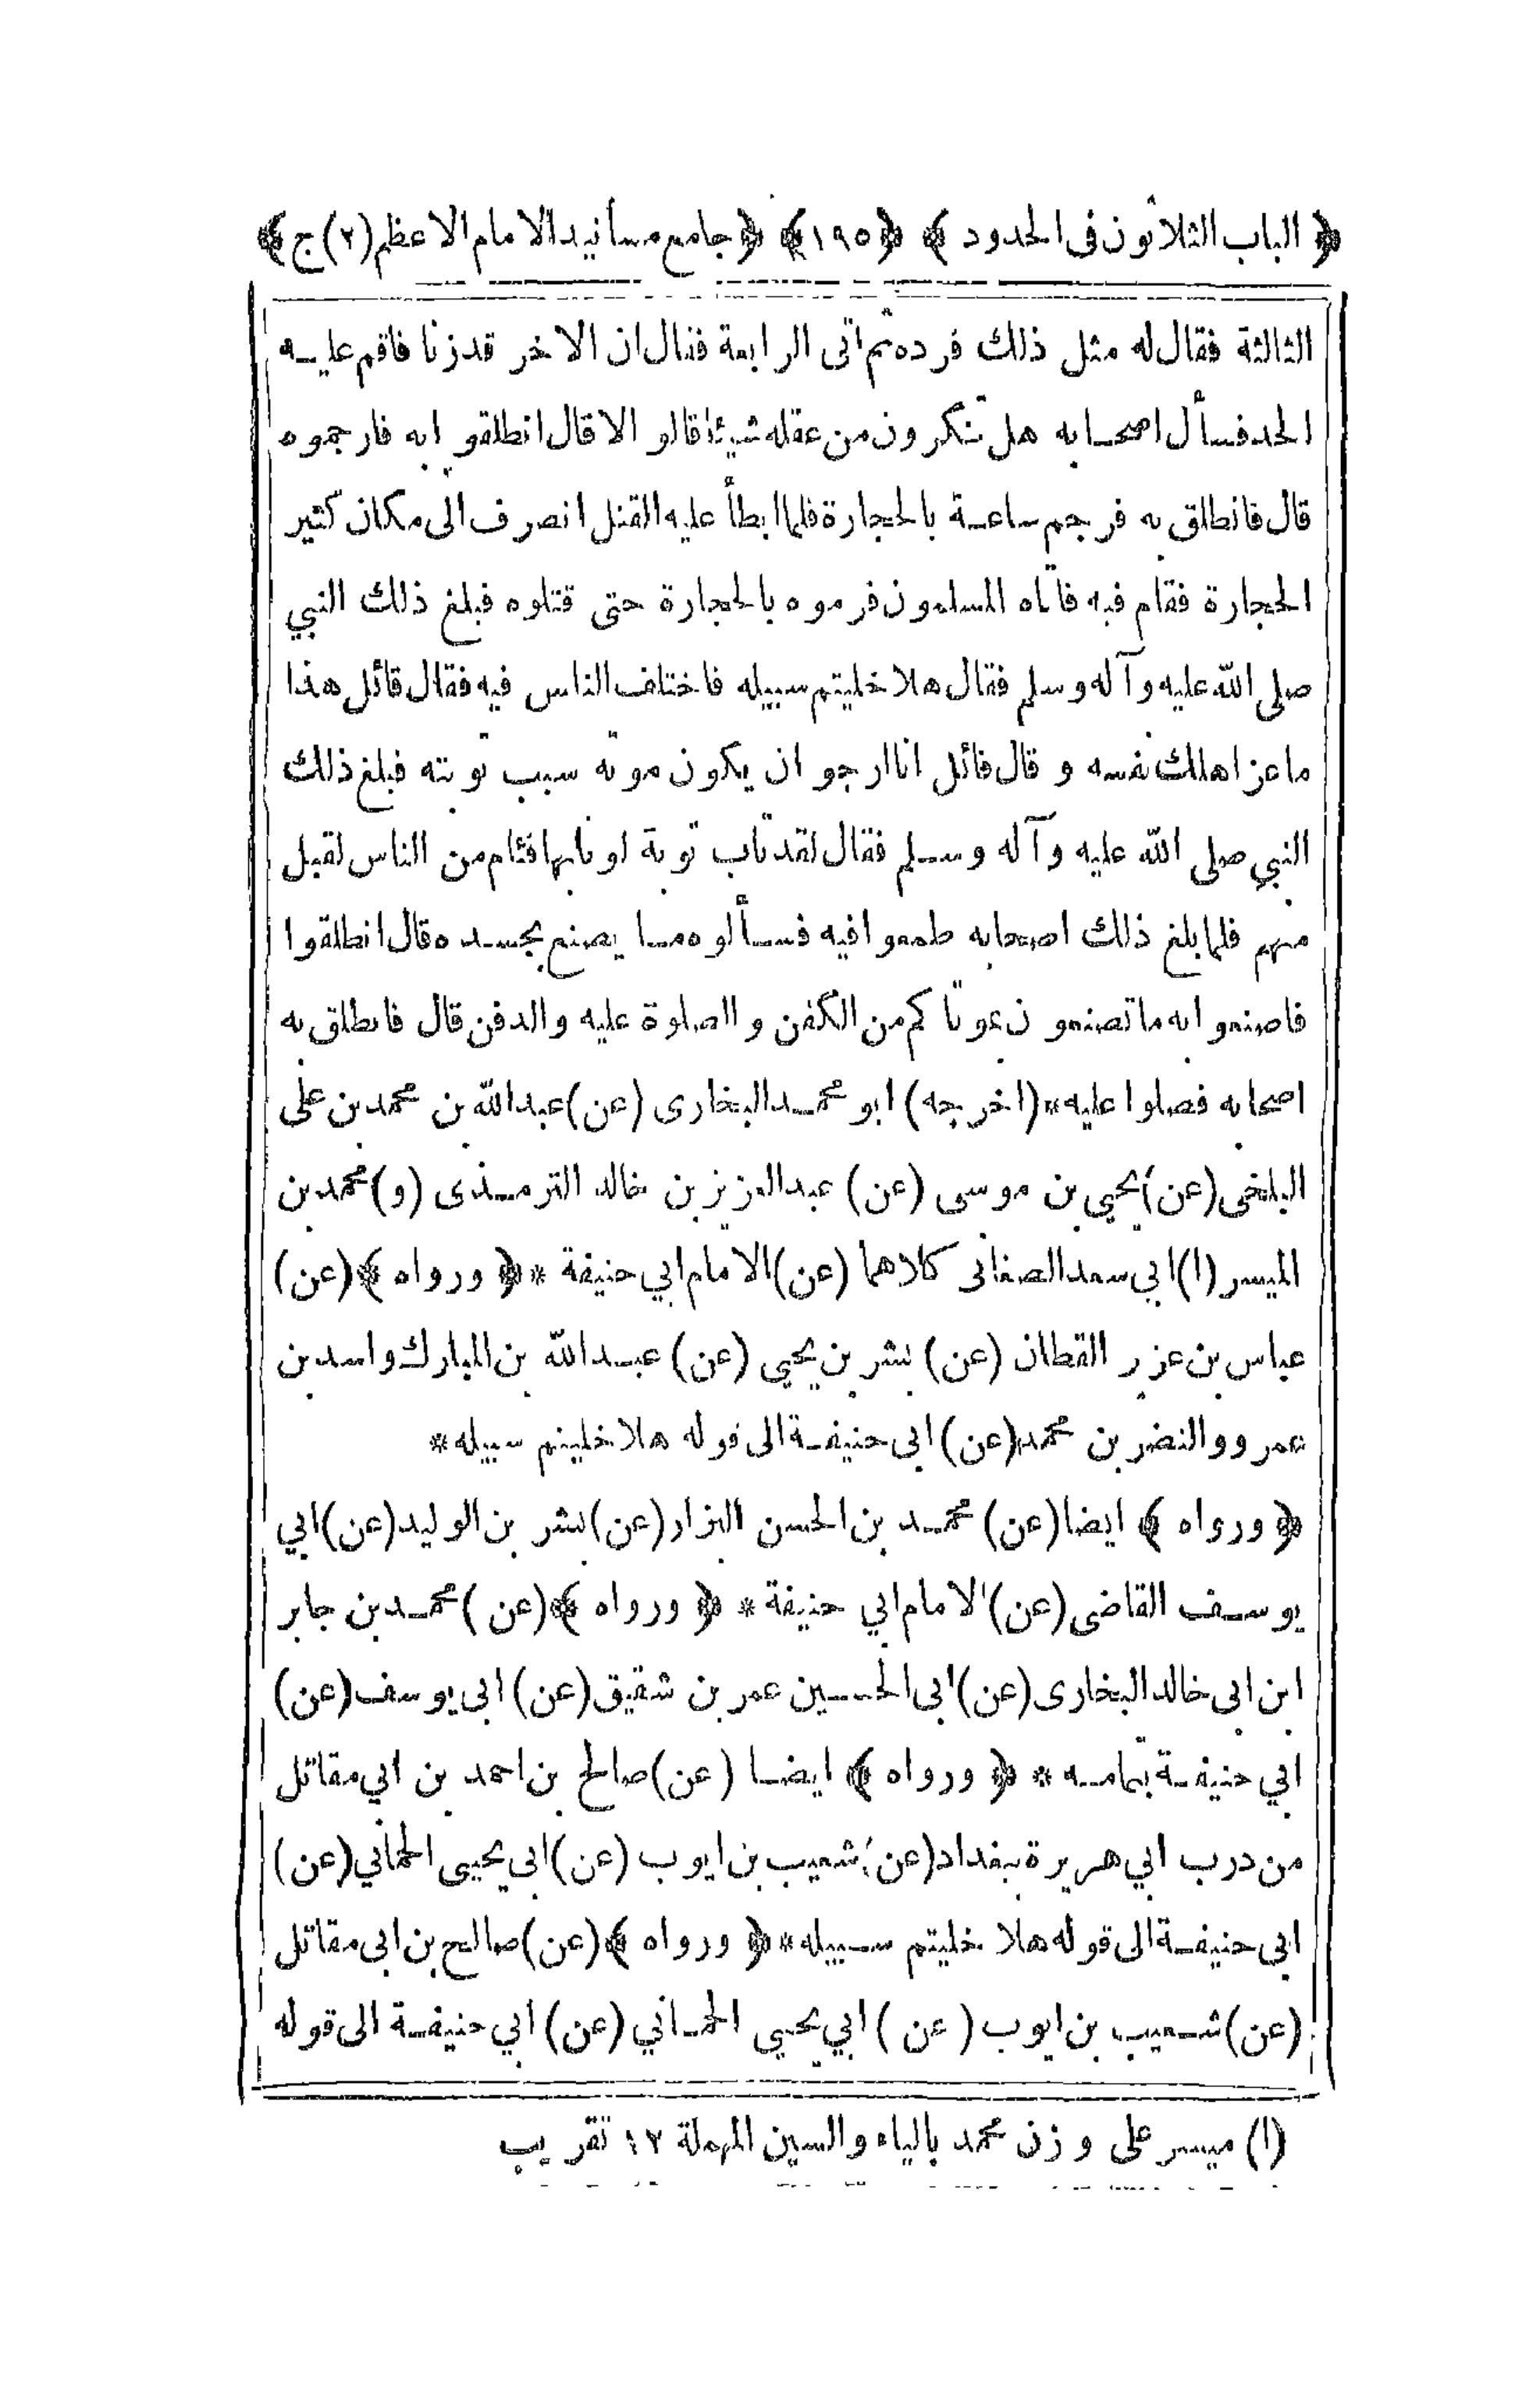 ﴿ الباب الثلاثون فى الحدود ﴾ ﴿١٩٥﴾ ﴿ جامع مسانيد الامام الاعظم (٢) ج ﴾
الثالثة فقال له مثل ذلك فرده ثم اتى الرابعة فقال ان الاخر قد زنا فاقم عليه
الحد فسأل اصحابه هل تنكرون من عقله شيئا قالوا لا قال انطلقوا به فارجموه
قال فانطلق به فرجم ساعة بالحجارة فلما ابطأ عليه القتل انصرف الى مكان كثير
الحجارة فقام فيه فاتاه المسلمون فرموه بالحجارة حتى قتلوه فبلغ ذلك النبي
صلى الله عليه وآله وسلم فقال هلا خليتم سبيله فاختلف الناس فيه فقال قائل هذا
ماعز اهلك نفسه و قال قائل انا ارجو ان يكون موته سبب توبته فبلغ ذلك
النبي صلى الله عليه وآله وسلم فقال لقد تاب توبة لو تابها فئام من الناس لقبل
منهم فلما بلغ ذلك اصحابه طمعوا فيه فسألوه ما يصنع بجسده قال انطلقوا
فاصنعوا به ما تصنعون بموتاكم من الكفن والصلوة عليه والدفن قال فانطلق به
اصحابه فصلوا عليه * (اخرجه) ابو محمد البخارى (عن) عبد الله بن محمد بن على
البلخى (عن) يحيى بن موسى (عن) عبد العزيز بن خالد الترمذى (و) محمد بن
الميسر (١) ابي سعد الصغانى كلاهما (عن) الامام ابي حنيفة * ﴿ ورواه ﴾ (عن)
عباس بن عزير القطان (عن) بشر بن يحيى (عن) عبد الله بن المبارك واسد بن
عمرو والنضر بن محمد (عن) ابى حنيفة الى قوله هلا خليتم سبيله *
﴿ ورواه ﴾ ايضا (عن) محمد بن الحسن البزار (عن) بشر بن الوليد (عن) ابي
يوسف القاضى (عن) الامام ابي حنيفة * ﴿ ورواه ﴾ (عن) محمد بن جابر
ابن ابى خالد البخارى (عن) ابى الحسين عمر بن شقيق (عن) ابى يوسف (عن)
ابي حنيفة بتمامه * ﴿ ورواه ﴾ ايضا (عن) صالح بن احمد بن ابي مقاتل
من درب ابي هريرة ببغداد (عن) شعيب بن ايوب (عن) ابي يحيى الحماني (عن)
ابى حنيفة الى قوله هلا خليتم سبيله * ﴿ ورواه ﴾ (عن) صالح بن ابى مقاتل
(عن) شعيب بن ايوب (عن) ابي يحيى الحماني (عن) ابي حنيفة الى قوله
(١) ميسر على وزن محمد بالياء والسين المهملة ١٢ تقريب